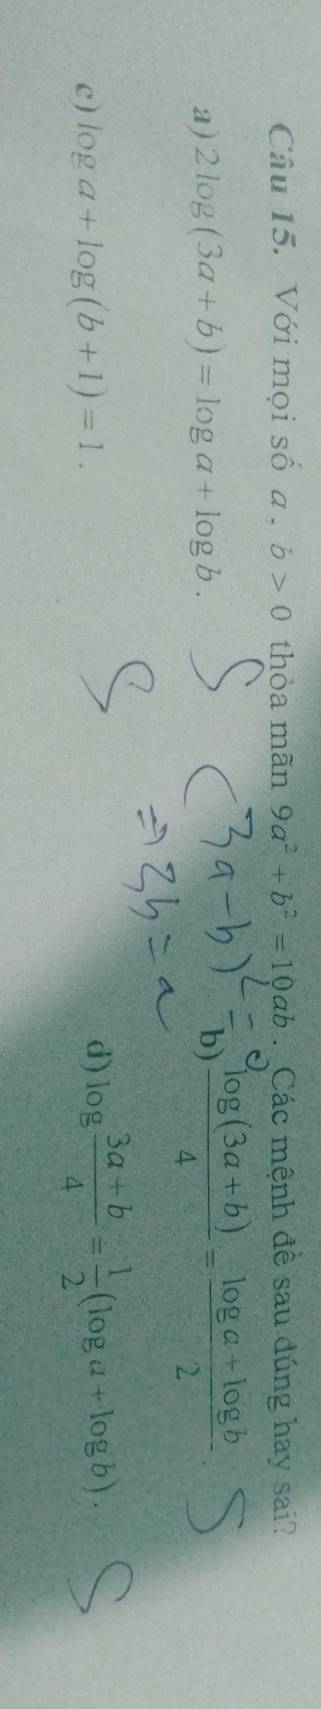 Câu 15. Với mọi số a, b > 0 thỏa mãn 9a² + b² = 10ab. Các mệnh đề sau đúng hay sai?
a) 2 log(3a + b) = log a + log b. S
b) \frac{log(3a + b)}{4} = \frac{log a + log b}{2}. S
(3a - b)² = 0
=> 3b = a
c) log a + log(b + 1) = 1. S
d) log \frac{3a + b}{4} = \frac{1}{2}(log a + log b). S